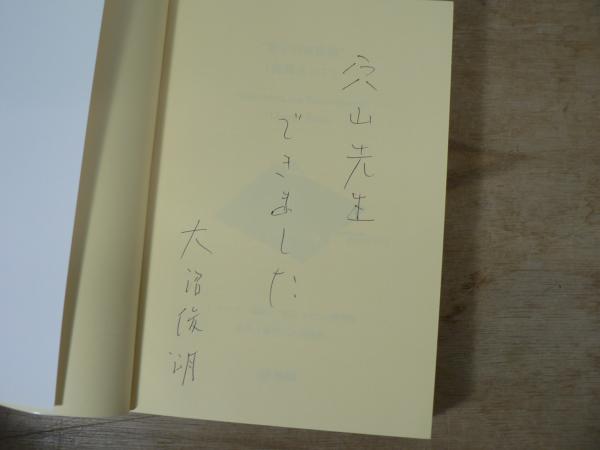 穴山先生
できました
大沼俊朗